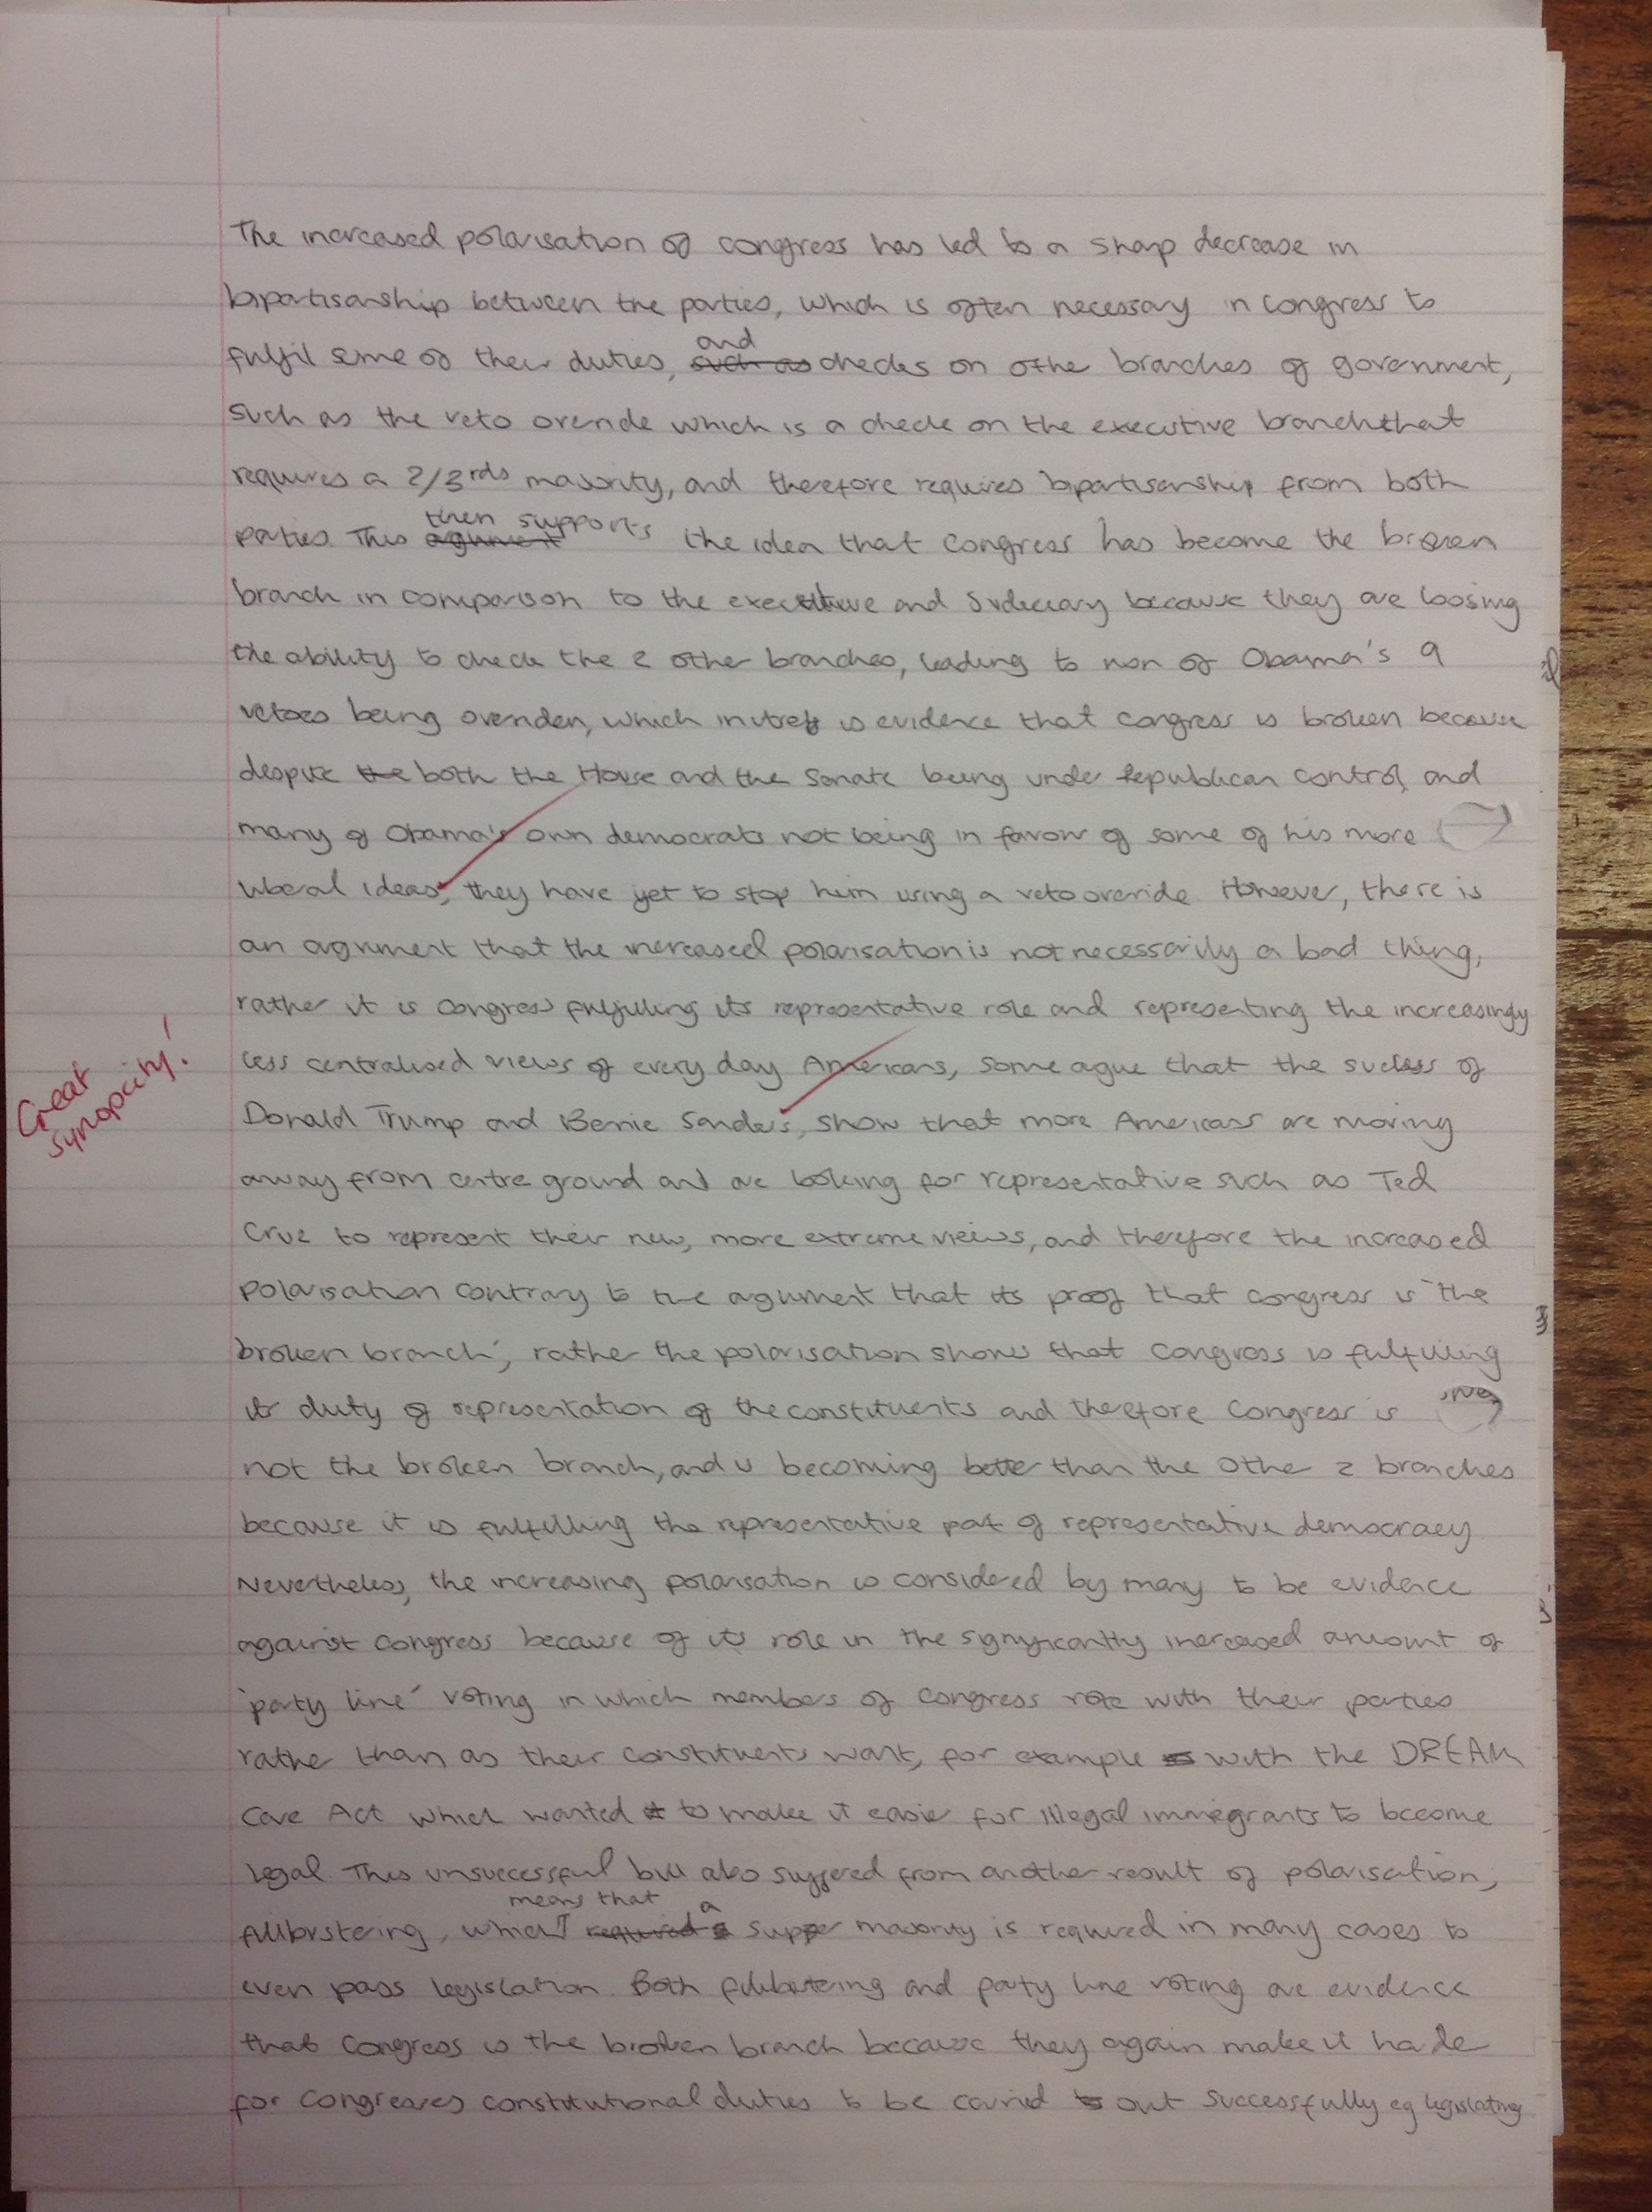 The increased polarisation of congress has led to a sharp decrease in
bipartisanship between the parties, which is often necessary in congress to
and
fulfil some of their duties, such as checks on othe branches of government,
such as the veto overide which is a check on the executive branch that
requires a 2/3rds majority, and therefore requires bipartisanship from both
then supports
parties. This agument the idea that congress has become the broken
branch in comparison to the executive and Judiciary because they are loosing
the ability to check the 2 other branches, leading to non of Obama's 9
vetoes being overriden, which in itself is evidence that congress is broken because
despite the both the House and the Senate being under Republican control, and
many of Obama's own democrats not being in favour of some of his more
liberal ideas, they have yet to stop him using a veto overide. However, there is
an argument that the increased polarisation is not necessarily a bad thing,
rather it is congress fulfilling its representative role and representing the increasingly
less centralised views of every day Americans, some ague that the success of
Great
synopcity!
Donald Trump and Bernie Sanders, show that more Americans are moving
away from centre ground and are looking for representative such as Ted
Cruz to represent their new, more extreme views, and therefore the increased
polarisation contrary to the agument that its proof that congress is 'the
broken branch', rather the polarisation shows that Congress is fulfilling
its duty of representation of the constituents and therefore Congress is
not the broken branch, and is becoming better than the othe 2 branches
because it is fulfilling the representative part of representative democracy.
Nevertheless, the increasing polarisation is considered by many to be evidence
against congress because of its role in the significantly increased amount of
'party line' voting in which members of congress vote with their parties
rather than as their constituents want, for example with the DREAM
Cave Act which wanted to make it easier for illegal immegrants to become
legal. This unsuccessful bill also suffered from another result of polarisation,
means that a
fillibustering, which required a super majority is required in many cases to
even pass legislation. Both fillibustering and party line voting are evidence
that Congress is the broken branch because they again make it harde
for congresses constitutional duties to be carried to out successfully eg legislating